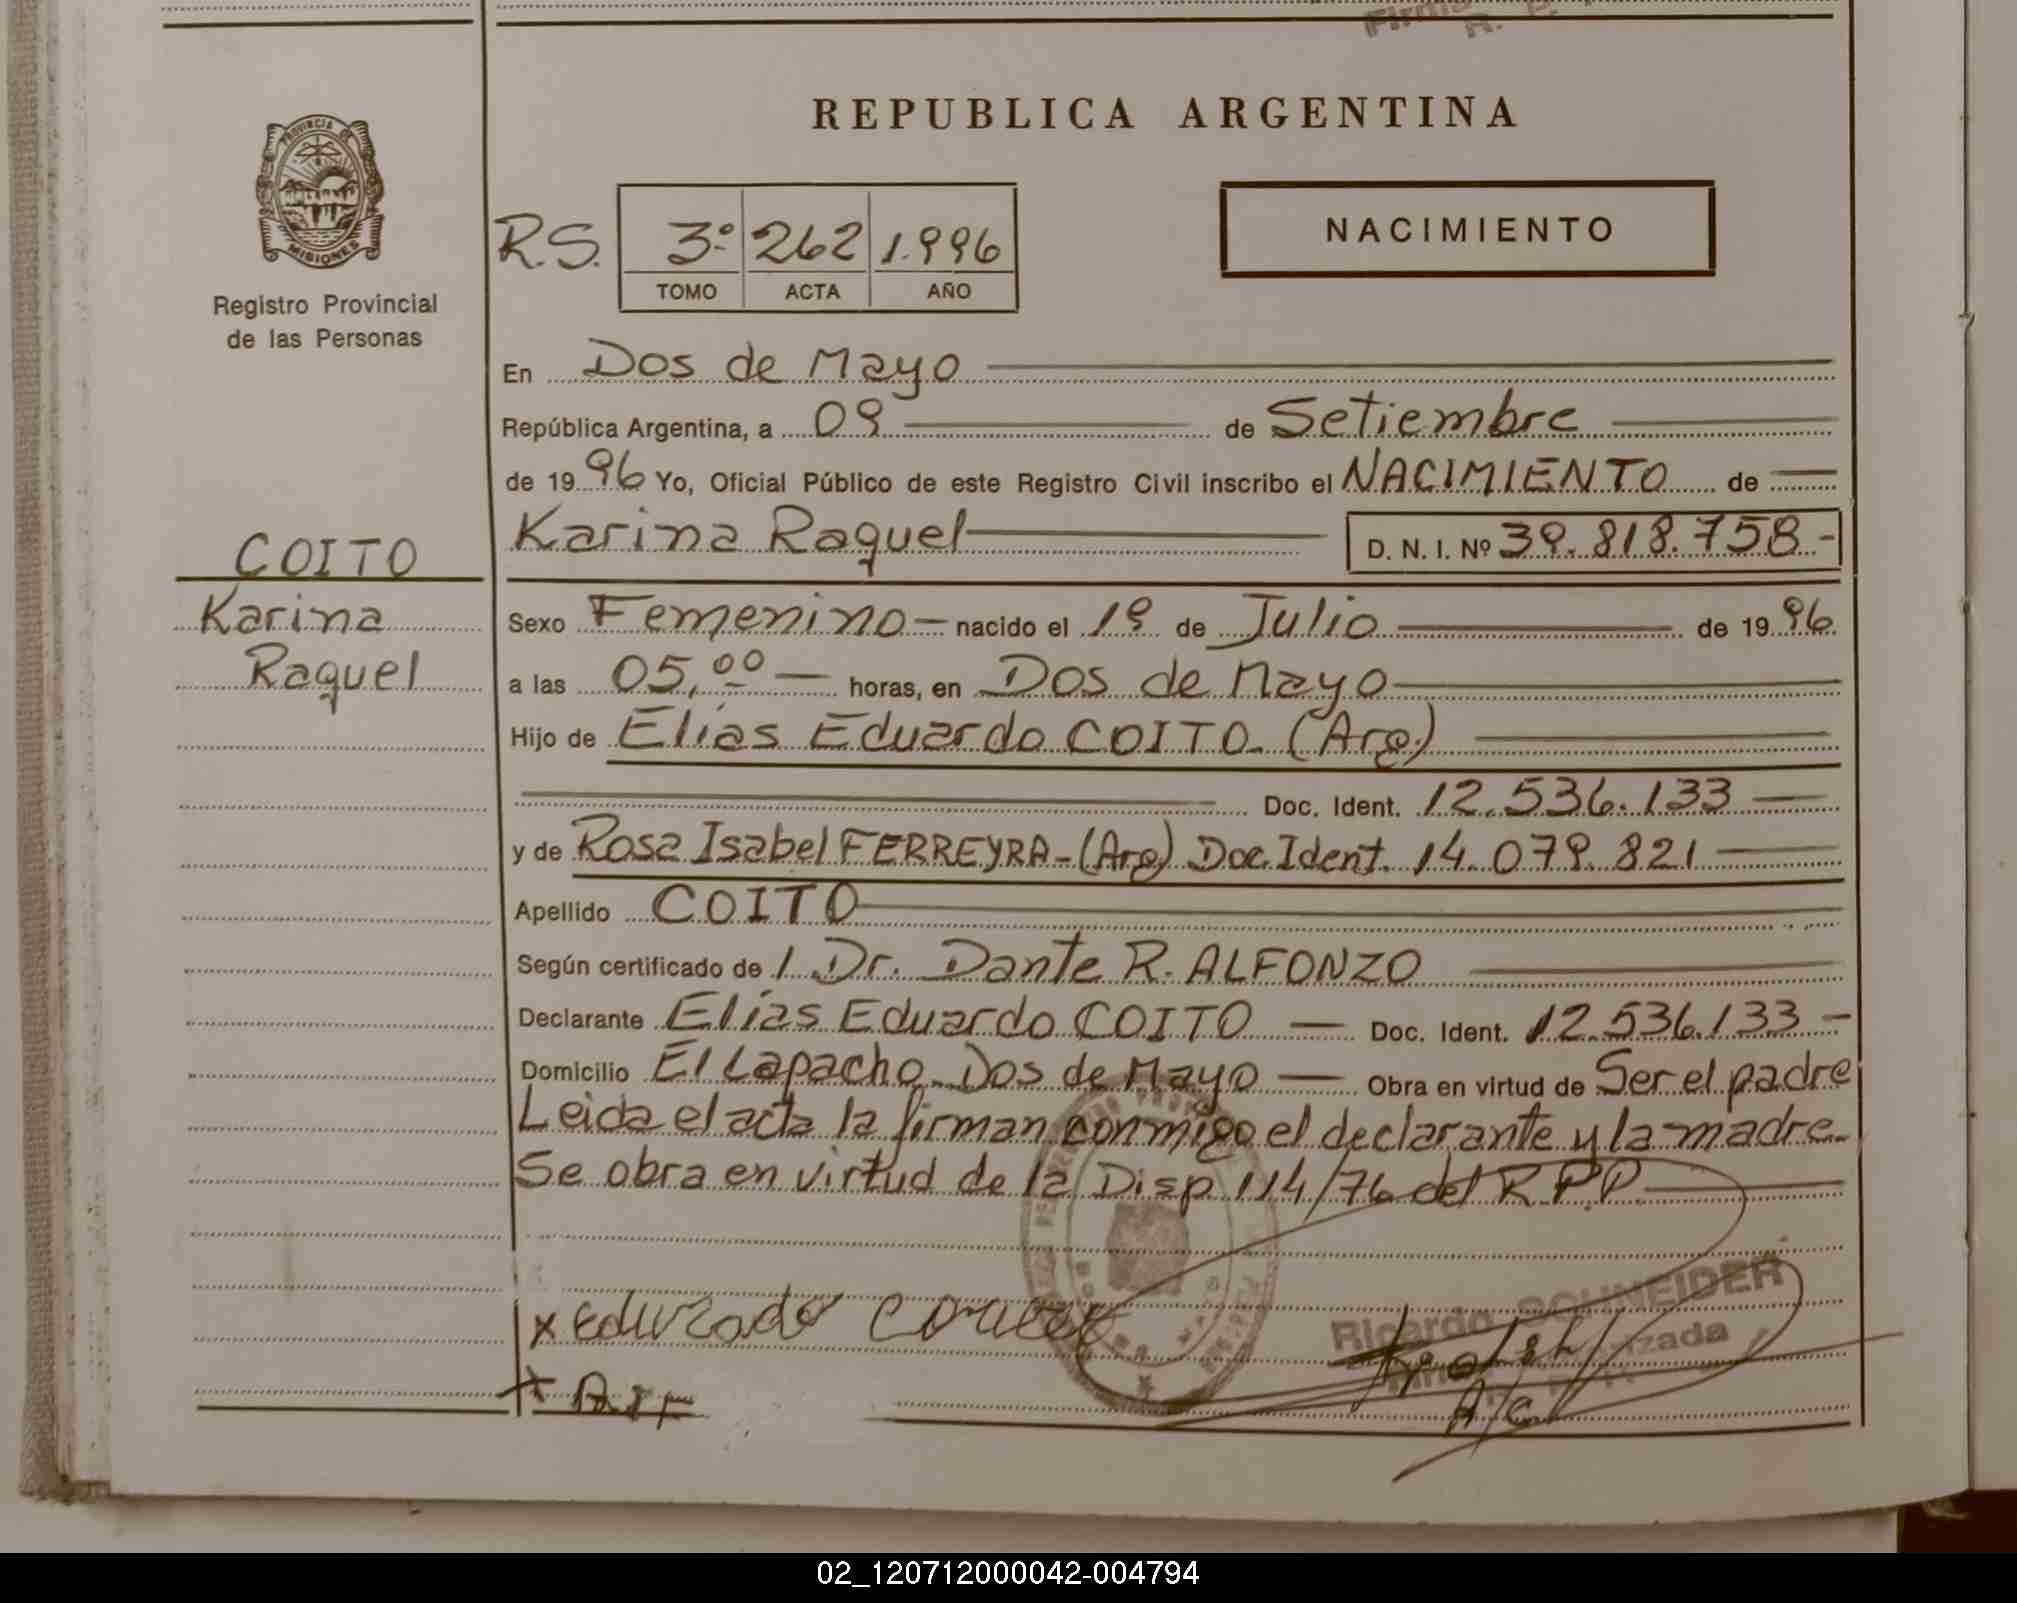 REPUBLICA ARGENTINA
PROVINCIA DE
MISIONES
Registro Provincial
de las Personas
R.S. 3º 262 1.996
TOMO ACTA AÑO
NACIMIENTO
En Dos de Mayo
República Argentina, a 09 de Setiembre
de 1996 Yo, Oficial Público de este Registro Civil inscribo el NACIMIENTO de
Karina Raquel D. N. I. Nº 39.818.758-
COITO
Karina
Raquel
Sexo Femenino nacido el 19 de Julio de 1996
a las 05,00 horas, en Dos de Mayo
Hijo de Elías Eduardo COITO. (Arg.)
Doc. Ident. 12.536.133
y de Rosa Isabel FERREYRA-(Arg) Doc. Ident. 14.079.821
Apellido COITO
Según certificado de 1 Dr. Dante R. ALFONZO
Declarante Elías Eduardo COITO Doc. Ident. 12.536.133
Domicilio El Lapacho. Dos de Mayo Obra en virtud de Ser el padre
Leida el acta la firman conmigo el declarante y la madre.
Se obra en virtud de la Disp. 114/76 del R.P.P.
x Eduardo
Ricardo SCHNEIDER
A/C
02_120712000042-004794